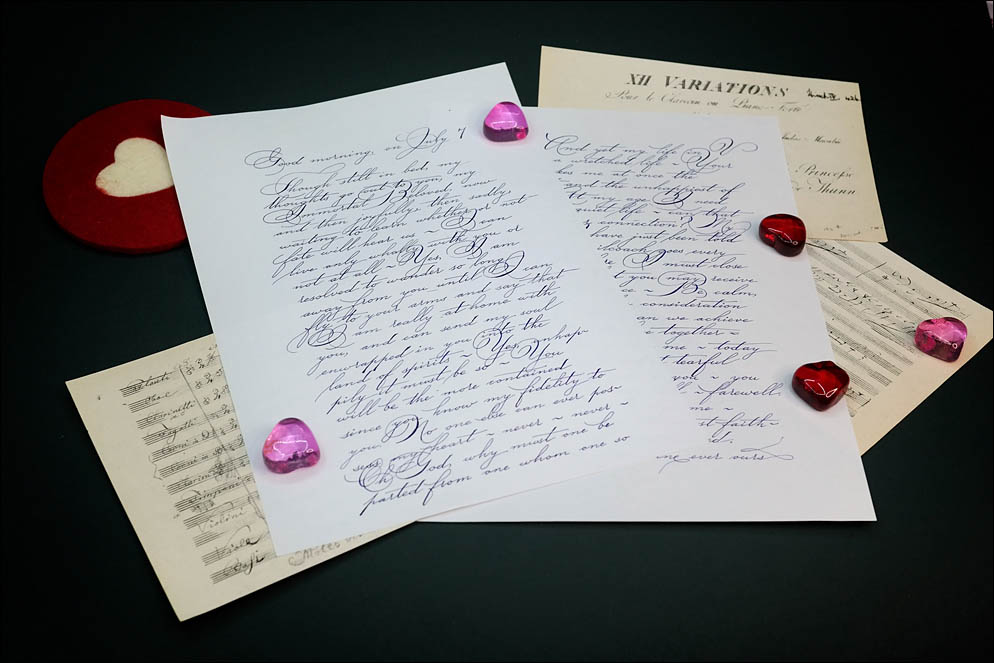 Good morning, on July 7
Though still in bed, my
thoughts go out to you, my
Immortal Beloved, now
and then joyfully, then sadly
waiting to learn whether or not
fate will hear us ~ I can
live only wholly with you or
not at all ~ Yes, I am
resolved to wander so long
away from you until I can
fly to your arms and say that
I am really at home with
you, and can send my soul
enwrapped in you into the
land of spirits ~ Yes, unhap-
pily it must be so ~ You
will be the more contained
since you know my fidelity to
you. No one else can ever pos-
sess my heart ~ never ~ never ~
Oh God, why must one be
parted from one whom one so
And yet my life in V
a wretched life ~ Your
es me at once the
and the unhappiest of
t my age I need
quiet life ~ can that
connection? My
have just been told
coach goes every
I must close
t you may receive
~ Be calm,
consideration
an we achieve
e together ~
me ~ today
t tearful
you ~ you
~ farewell.
me ~
st faith-
ed.
ne ever ours
XII VARIATIONS
Pour le Clavecin ou Piano-Forte
Princesse
Thunn
Flauti
Oboi
Clarinetti
Fagotti
Corni in
Corni in
Timpani
Violini
Viole
Bassi